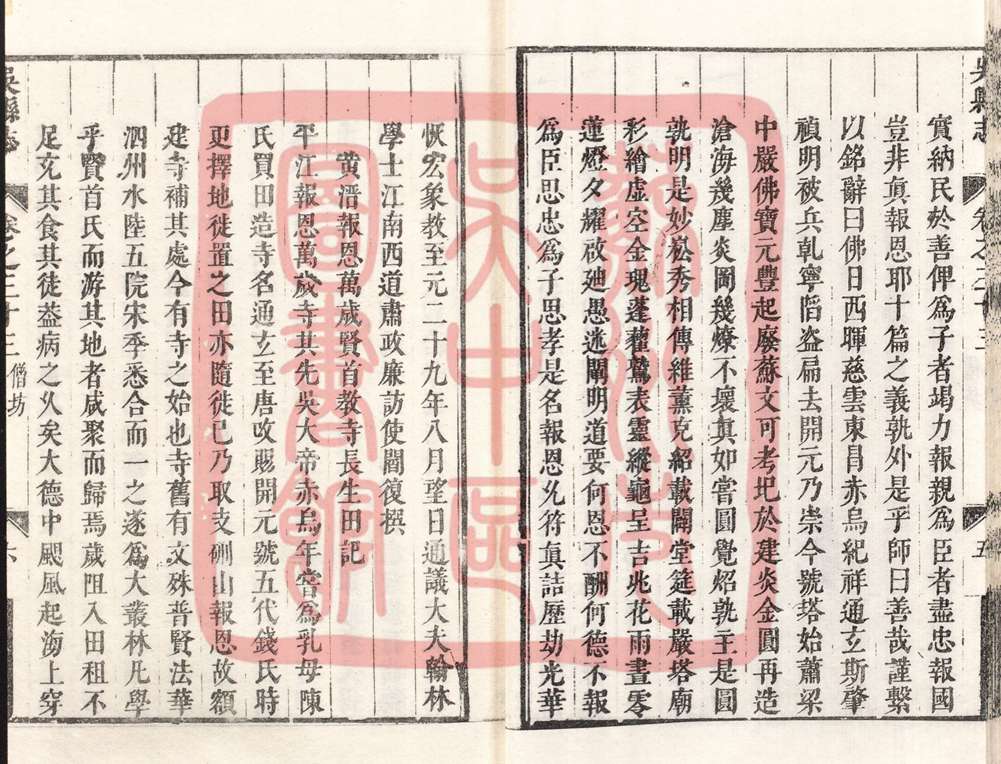 吳縣志
卷之三十三
五
實納民於善俾爲子者竭力報親爲臣者盡忠報國
豈非眞報恩耶十篇之義孰外是乎師曰善哉謹繫
以銘辭曰佛日西暉慈雲東昌赤烏紀祥通玄斯肇
禎明被兵乾寧㨶盗扁去開元乃崇今號塔始蕭梁
中嚴佛寶元豐起廢蘇文可考圮於建炎金圓再造
滄海幾塵炎岡幾燎不壞眞如嘗圓覺炤孰主是圓
孰明是妙崧秀相傳維薰克紹載闢堂筵載嚴塔廟
彩繪虛空金瑰蓬藋鷲表靈縱龜呈吉兆花雨晝零
蓮燈夕耀啟廸愚迷闡明道要何恩不酬何德不報
爲臣思忠爲子思孝是名報恩允符眞詰歷劫光華
恢宏象教至元二十九年八月望日通議大夫翰林
學士江南西道肅政廉訪使閻復撰
黄溍報恩萬歲賢首教寺長生田記
平江報恩萬歲寺其先吳大帝赤烏年嘗爲乳母陳
氏買田造寺名通玄至唐改賜開元號五代錢氏時
更擇地徙置之田亦隨徙已乃取支硎山報恩故額
建寺補其處今有寺之始也寺舊有文殊普賢法華
泗州水陸五院宋季悉合而一之遂爲大叢林凡學
乎賢首氏而游其地者咸聚而歸焉歲阻入田租不
足充其食其徒葢病之久矣大德中颶風起海上穿
吳縣志
卷之三十三
僧坊
六
吳中區
圖書館